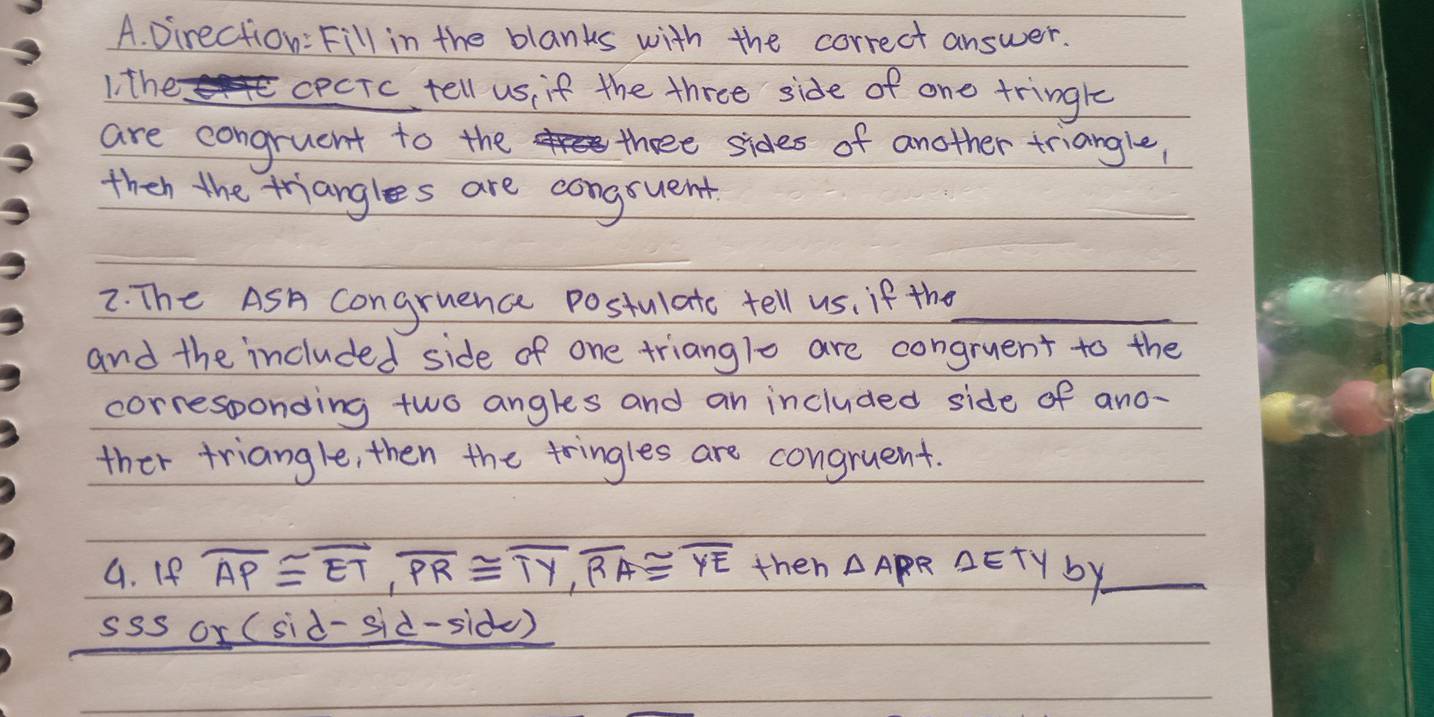 A. Direction: Fill in the blanks with the correct answer.
1. The CPCTC tell us, if the three side of one tringle
are congruent to the three sides of another triangle,
then the triangles are congruent.
2. The ASA Congruence Postulate tell us, if the ________
and the included side of one triangle are congruent to the
corresponding two angles and an included side of ano-
ther triangle, then the tringles are congruent.
4. If AP ≅ ET, PR ≅ TY, RA ≅ YE then Δ APR Δ ETY by____
SSS or (sid-sid-side)